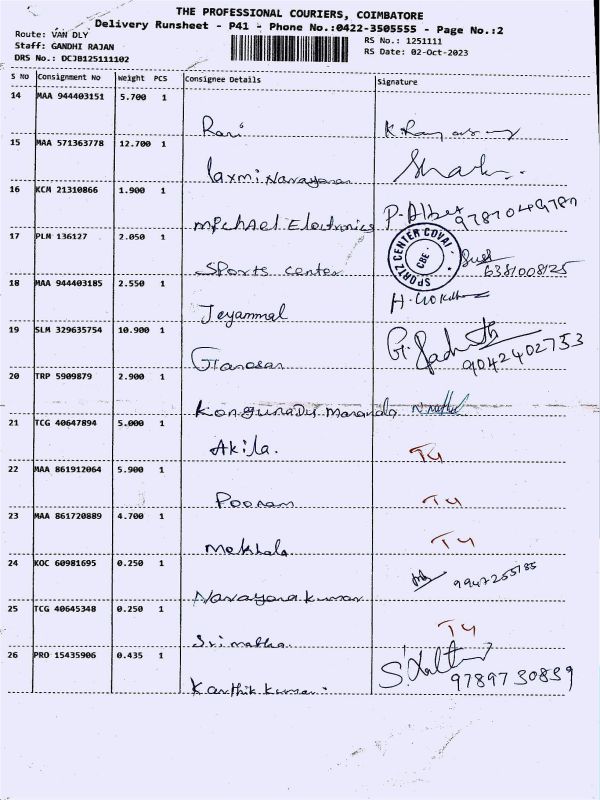 THE PROFESSIONAL COURIERS, COIMBATORE
Delivery Runsheet - P41 - Phone No.:0422-3505555 - Page No.:2
Route: VAN DLY
Staff: GANDHI RAJAN
DRS No.: DCJB125111102
RS No.: 1251111
RS Date: 02-Oct-2023
S No Consignment No Weight PCS Consignee Details Signature
14 MAA 944403151 5.700 1
Rani
15 MAA 571363778 12.700 1
Laxmi Narayanan
16 KCM 21310866 1.900 1
Michael Electronics P. Albex
17 PLM 136127 2.050 1
SPORTZ CENTER COVAI CBE
Sports center 6381008125
18 MAA 944403185 2.550 1
Jeyammal
19 SLM 329635754 10.900 1
Ganasan 9042402753
20 TRP 5909879 2.900 1
Kongunadu
21 TCG 40647894 5.000 1
Akila. T4
22 MAA 861912064 5.900 1
Poonam T4
23 MAA 861720889 4.700 1
Mekhala T4
24 KOC 60981695 0.250 1
Narayana kumar
25 TCG 40645348 0.250 1
Srimatha T4
26 PRO 15435906 0.435 1
Karthik kumar 9789730839